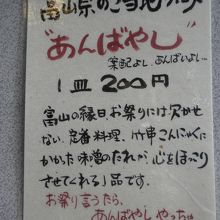 富山県のご当地グルメ
"あんばやし"
案配よし、あんばいよし…
1皿 200円
富山の縁日お祭りには欠かせ
ない、定番料理、竹串こんにゃくに
かかた味噌のたれが、心をほっこり
させてくれる1品です。
お祭り言うたら、
あんばやしやっちゃ